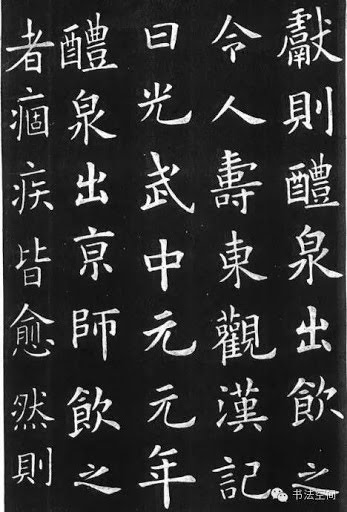 獻則醴泉出飲之
令人壽東觀漢記
曰光武中元元年
醴泉出京師飲之
者痼疾皆愈然則
书法空间